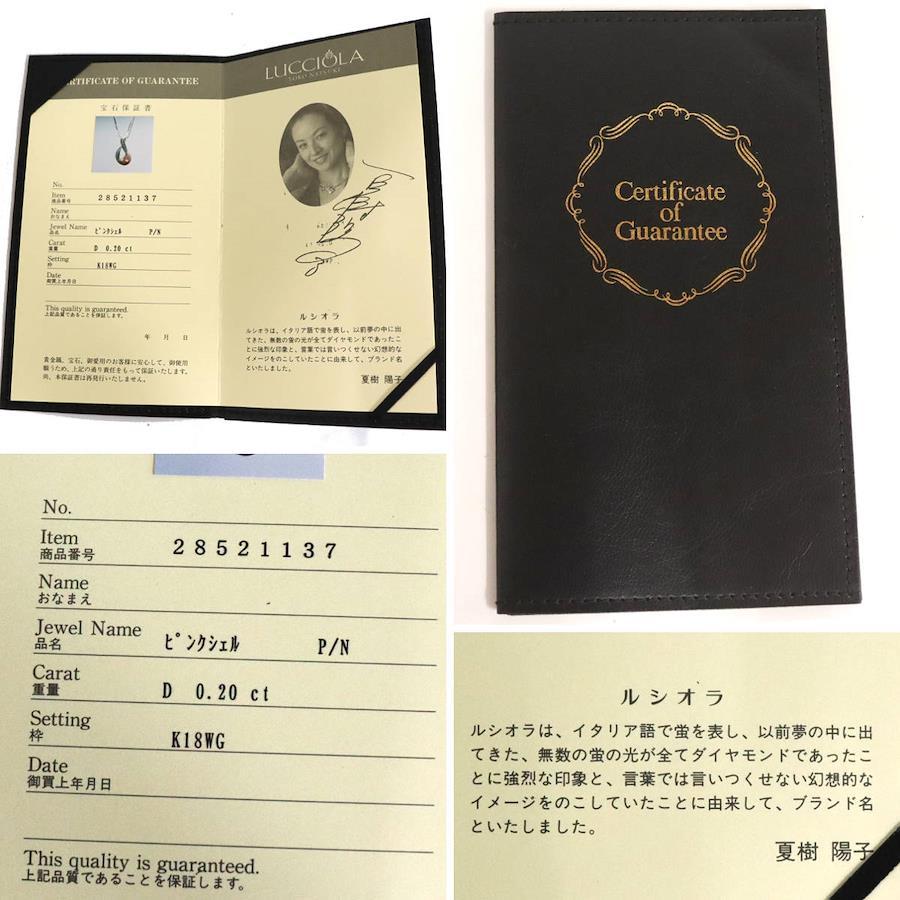 CERTIFICATE OF GUARANTEE
宝石保証書
No.
Item
商品番号
28521137
Name
おなまえ
Jewel Name
品名
ﾋﾟﾝｸｼｪﾙ P/N
Carat
重量
D 0.20 ct
Setting
枠
K18WG
Date
御買上年月日
This quality is guaranteed.
上記品質であることを保証します。
年 月 日
貴金属、宝石、御愛用のお客様に安心して、御使用
願うため、上記の通り責任をもって保証いたします。
尚、本保証書は再発行いたしません。
LUCCIOLA
YOKO NATSUKI
ルシオラ
ルシオラは、イタリア語で蛍を表し、以前夢の中に出
てきた、無数の蛍の光が全てダイヤモンドであったこ
とに強烈な印象と、言葉では言いつくせない幻想的な
イメージをのこしていたことに由来して、ブランド名
といたしました。
夏樹 陽子
Certificate
of
Guarantee
No.
Item
商品番号
28521137
Name
おなまえ
Jewel Name
品名
ﾋﾟﾝｸｼｪﾙ P/N
Carat
重量
D 0.20 ct
Setting
枠
K18WG
Date
御買上年月日
This quality is guaranteed.
上記品質であることを保証します。
ルシオラ
ルシオラは、イタリア語で蛍を表し、以前夢の中に出
てきた、無数の蛍の光が全てダイヤモンドであったこ
とに強烈な印象と、言葉では言いつくせない幻想的な
イメージをのこしていたことに由来して、ブランド名
といたしました。
夏樹 陽子